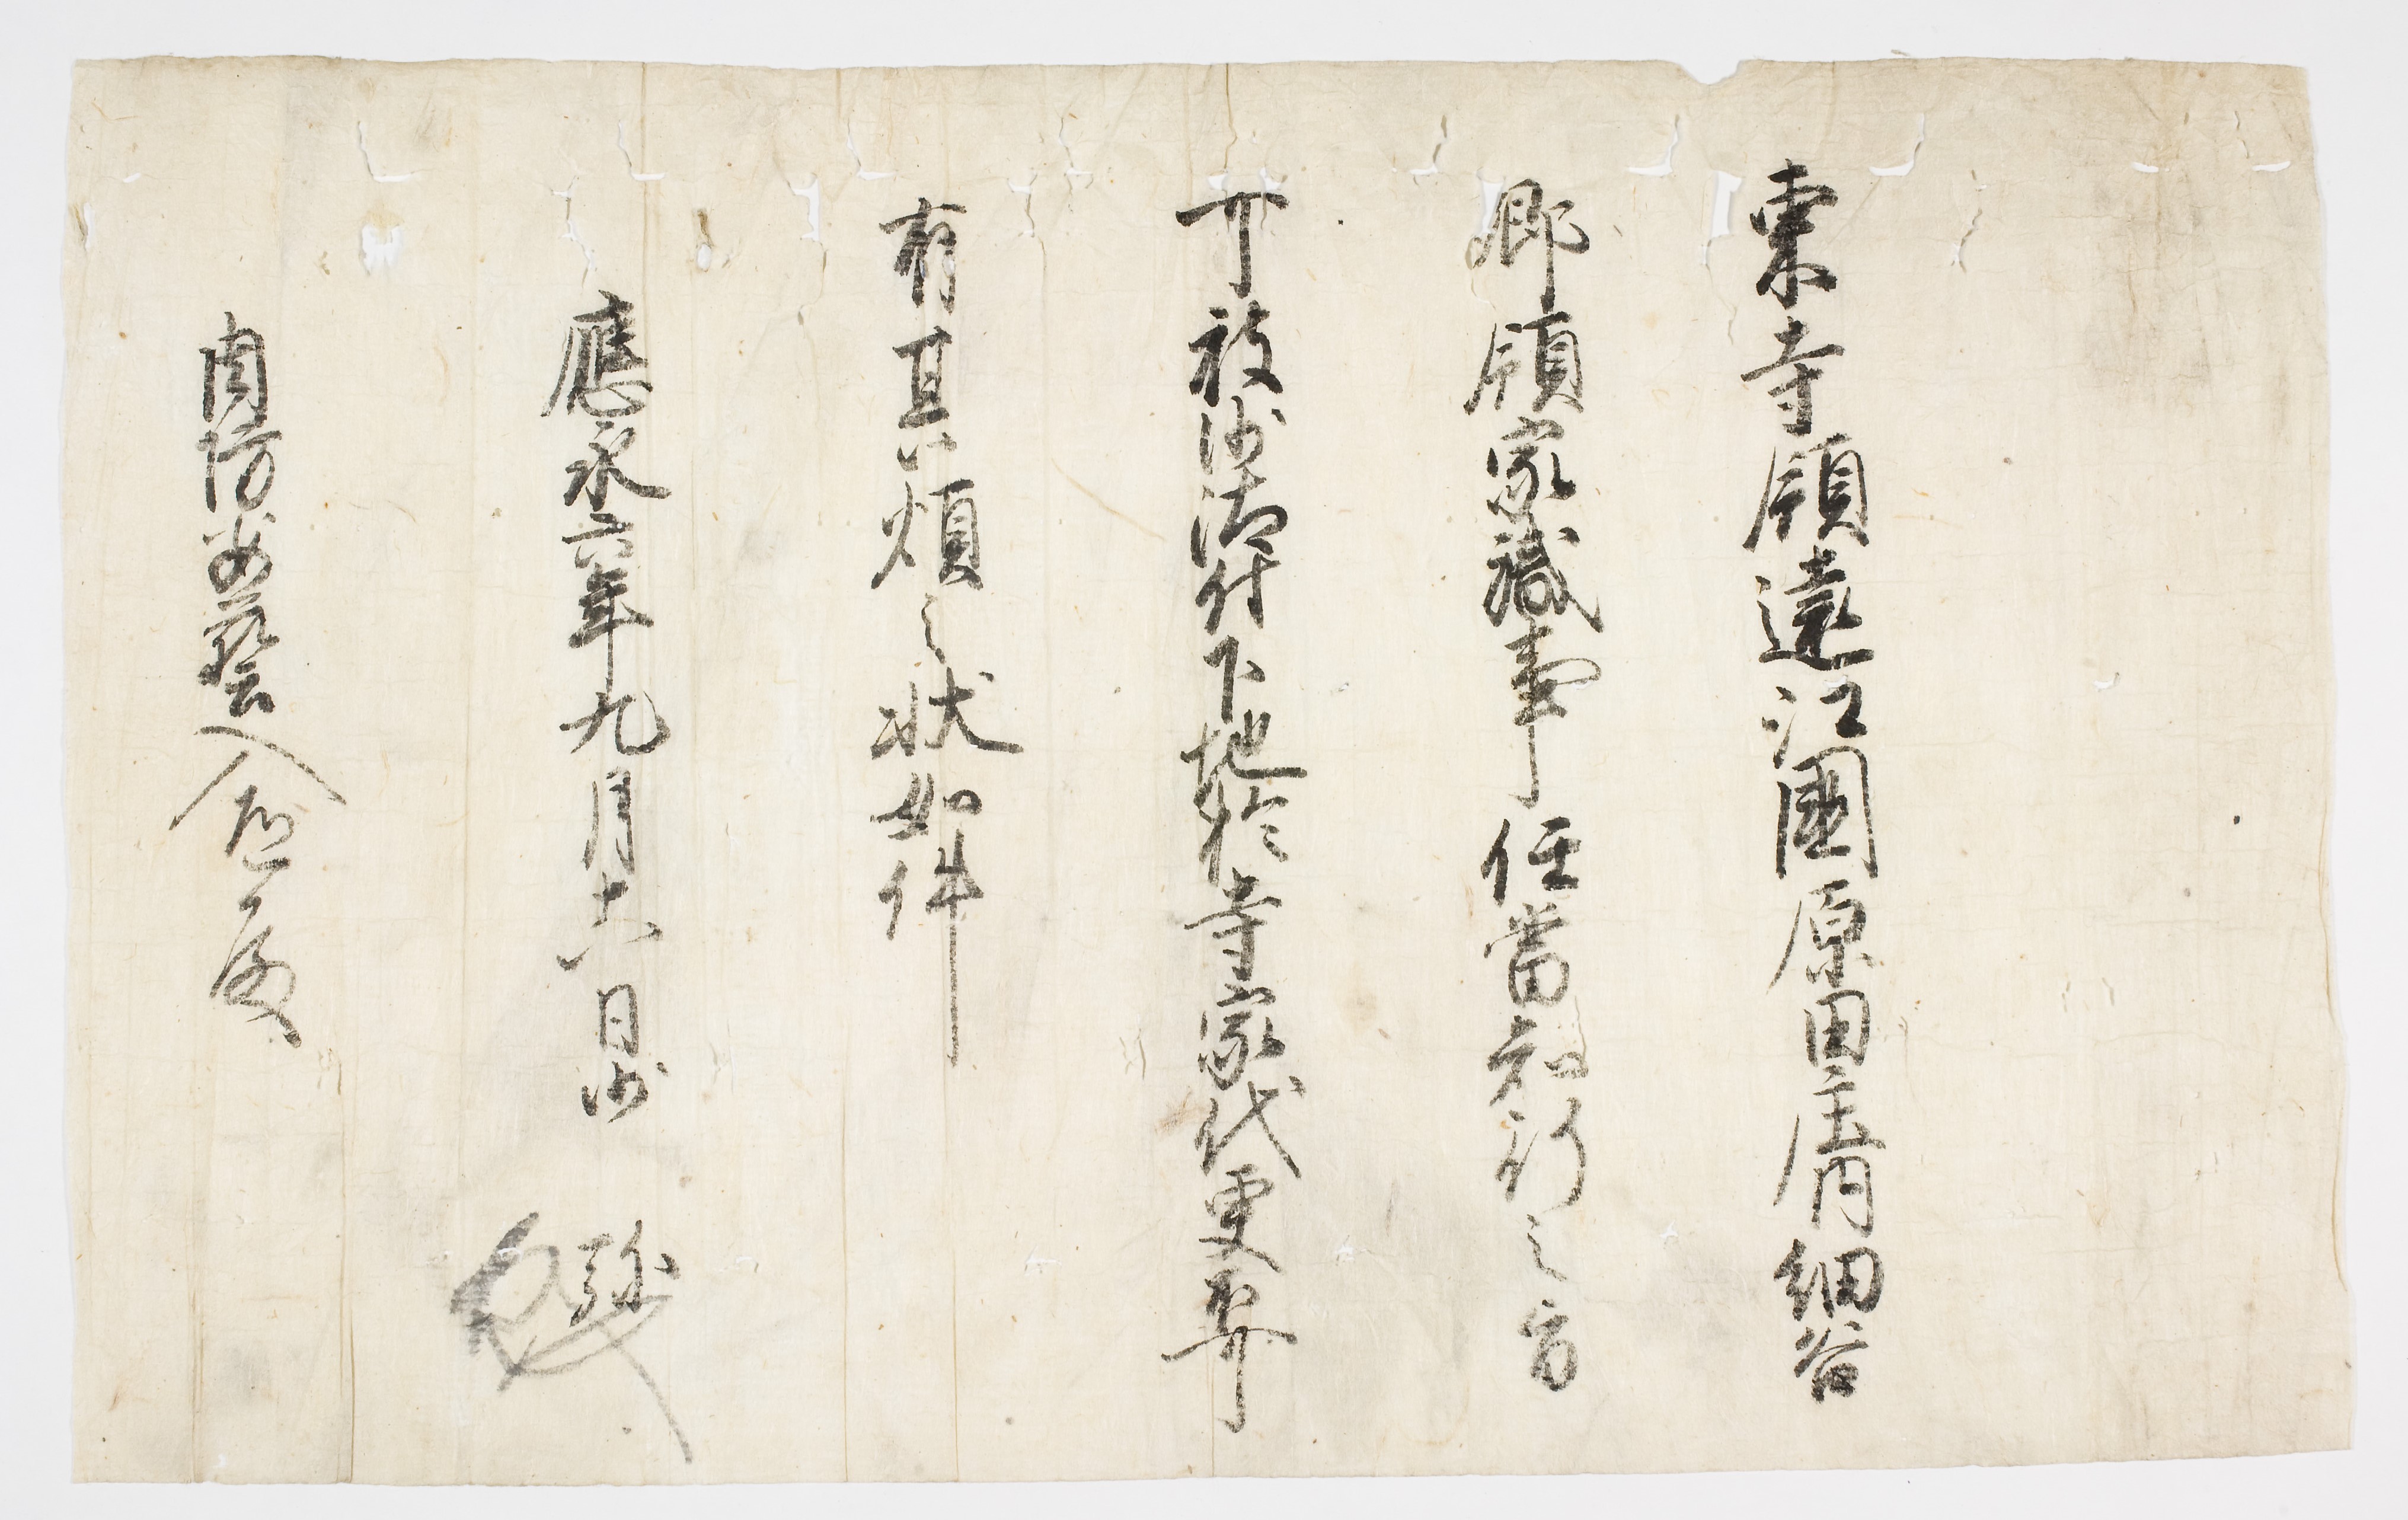 東寺領遠江國原田庄内細谷
郷領家職事任當知行之旨
可被沙汰付下地於寺家代更不可
有其煩之状如件
應永六年九月十八日沙弥
周防安藝入道殿